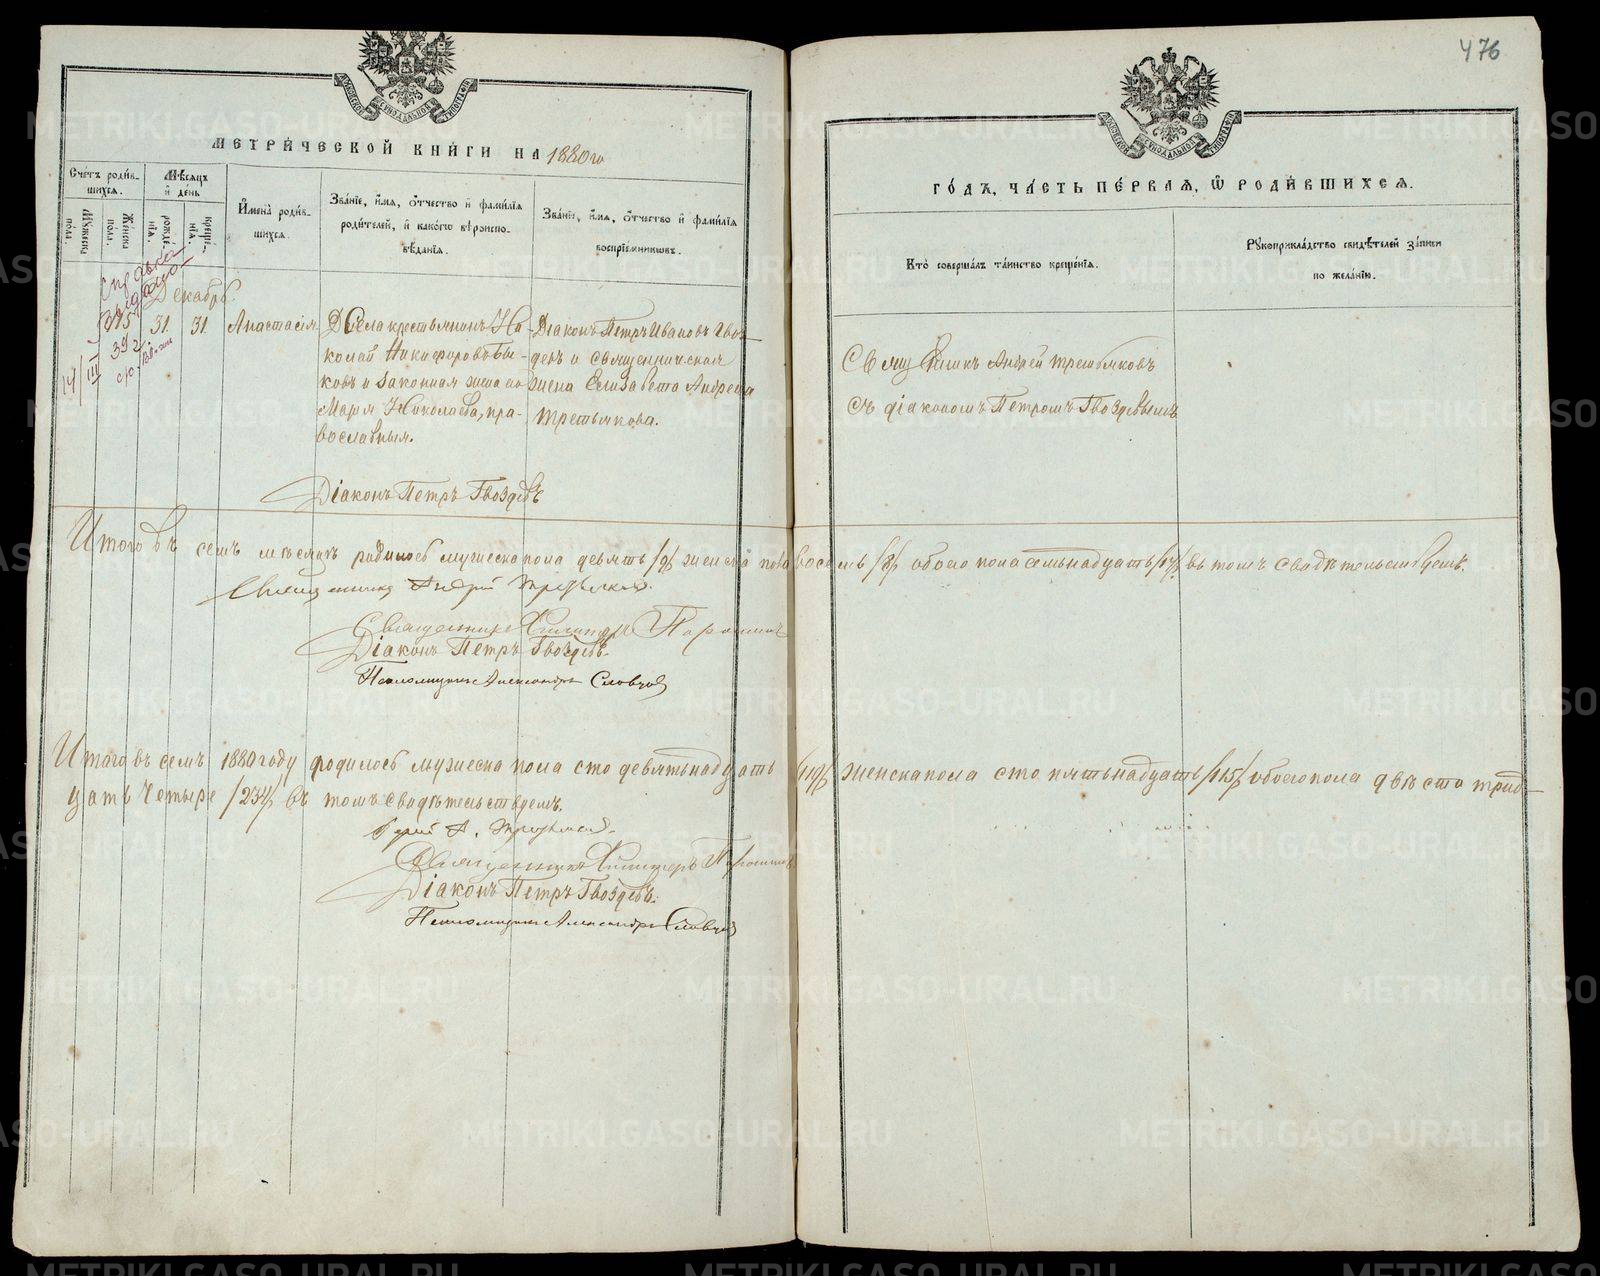 476
МЕТРИ́ЧЕСКОЙ КНИ́ГИ НА 1880го
ГО́ДЪ, ЧА́СТЬ ПЕ́РВАЯ, Ѿ РОДИ́ВШИХСЯ.
Сче́тъ роди́вшихся.
Мѣ́сяцъ и де́нь
Имена̀ роди́вшихся.
Зва́нїе, и́мя, о́тчество и фами́лїя родителей, и како́гѡ вѣроисповѣ́данїя.
Зва́нїе, и́мя, о́тчество и фами́лїя воспрїе́мникѡвъ.
Кто̀ соверша́лъ та́инство креще́нїя.
Рукоприкла́дство свидѣ́телей за́писи по жела́нїю.
Мꙋжеска по́ла.
Же́нска по́ла.
рожде́нїѧ.
креще́нїѧ.
Справка
выдана
Декабрь.
115 31. 31. Анастасія
Д Села крестьянинъ Николай Никифоровъ Быковъ и законная жена его Марія Николаева, православныя.
Діаконъ Петръ Ивановъ Гвоздевъ и священническая жена Елизавета Андреева Третьякова.
Священникъ Андрей Третьяковъ
съ діакономъ Петромъ Гвоздевымъ
14/III
39 г.
Діаконъ Петръ Гвоздевъ
Итого въ семъ мѣсяцѣ родилось мужеска пола девять /9/ женска пола восемь /8/ обоего пола семьнадцать /17/. въ томъ свидѣтельствуемъ.
Священникъ Андрей Третьяковъ.
Священникъ Порошинъ
Діаконъ Петръ Гвоздевъ.
Псаломщикъ Александръ Словцов
Итого въ семъ 1880 году родилось мужеска пола сто девятьнадцать /119/ женска пола сто пятьнадцать /115/ обоего пола двѣсти трид-
цать четыре /234/ въ томъ свидѣтельствуемъ.
Іерей А. Третьяков.
Священникъ Порошинъ
Діаконъ Петръ Гвоздевъ.
Псаломщикъ Александръ Словцов
METRIKI.GASO-URAL.RU